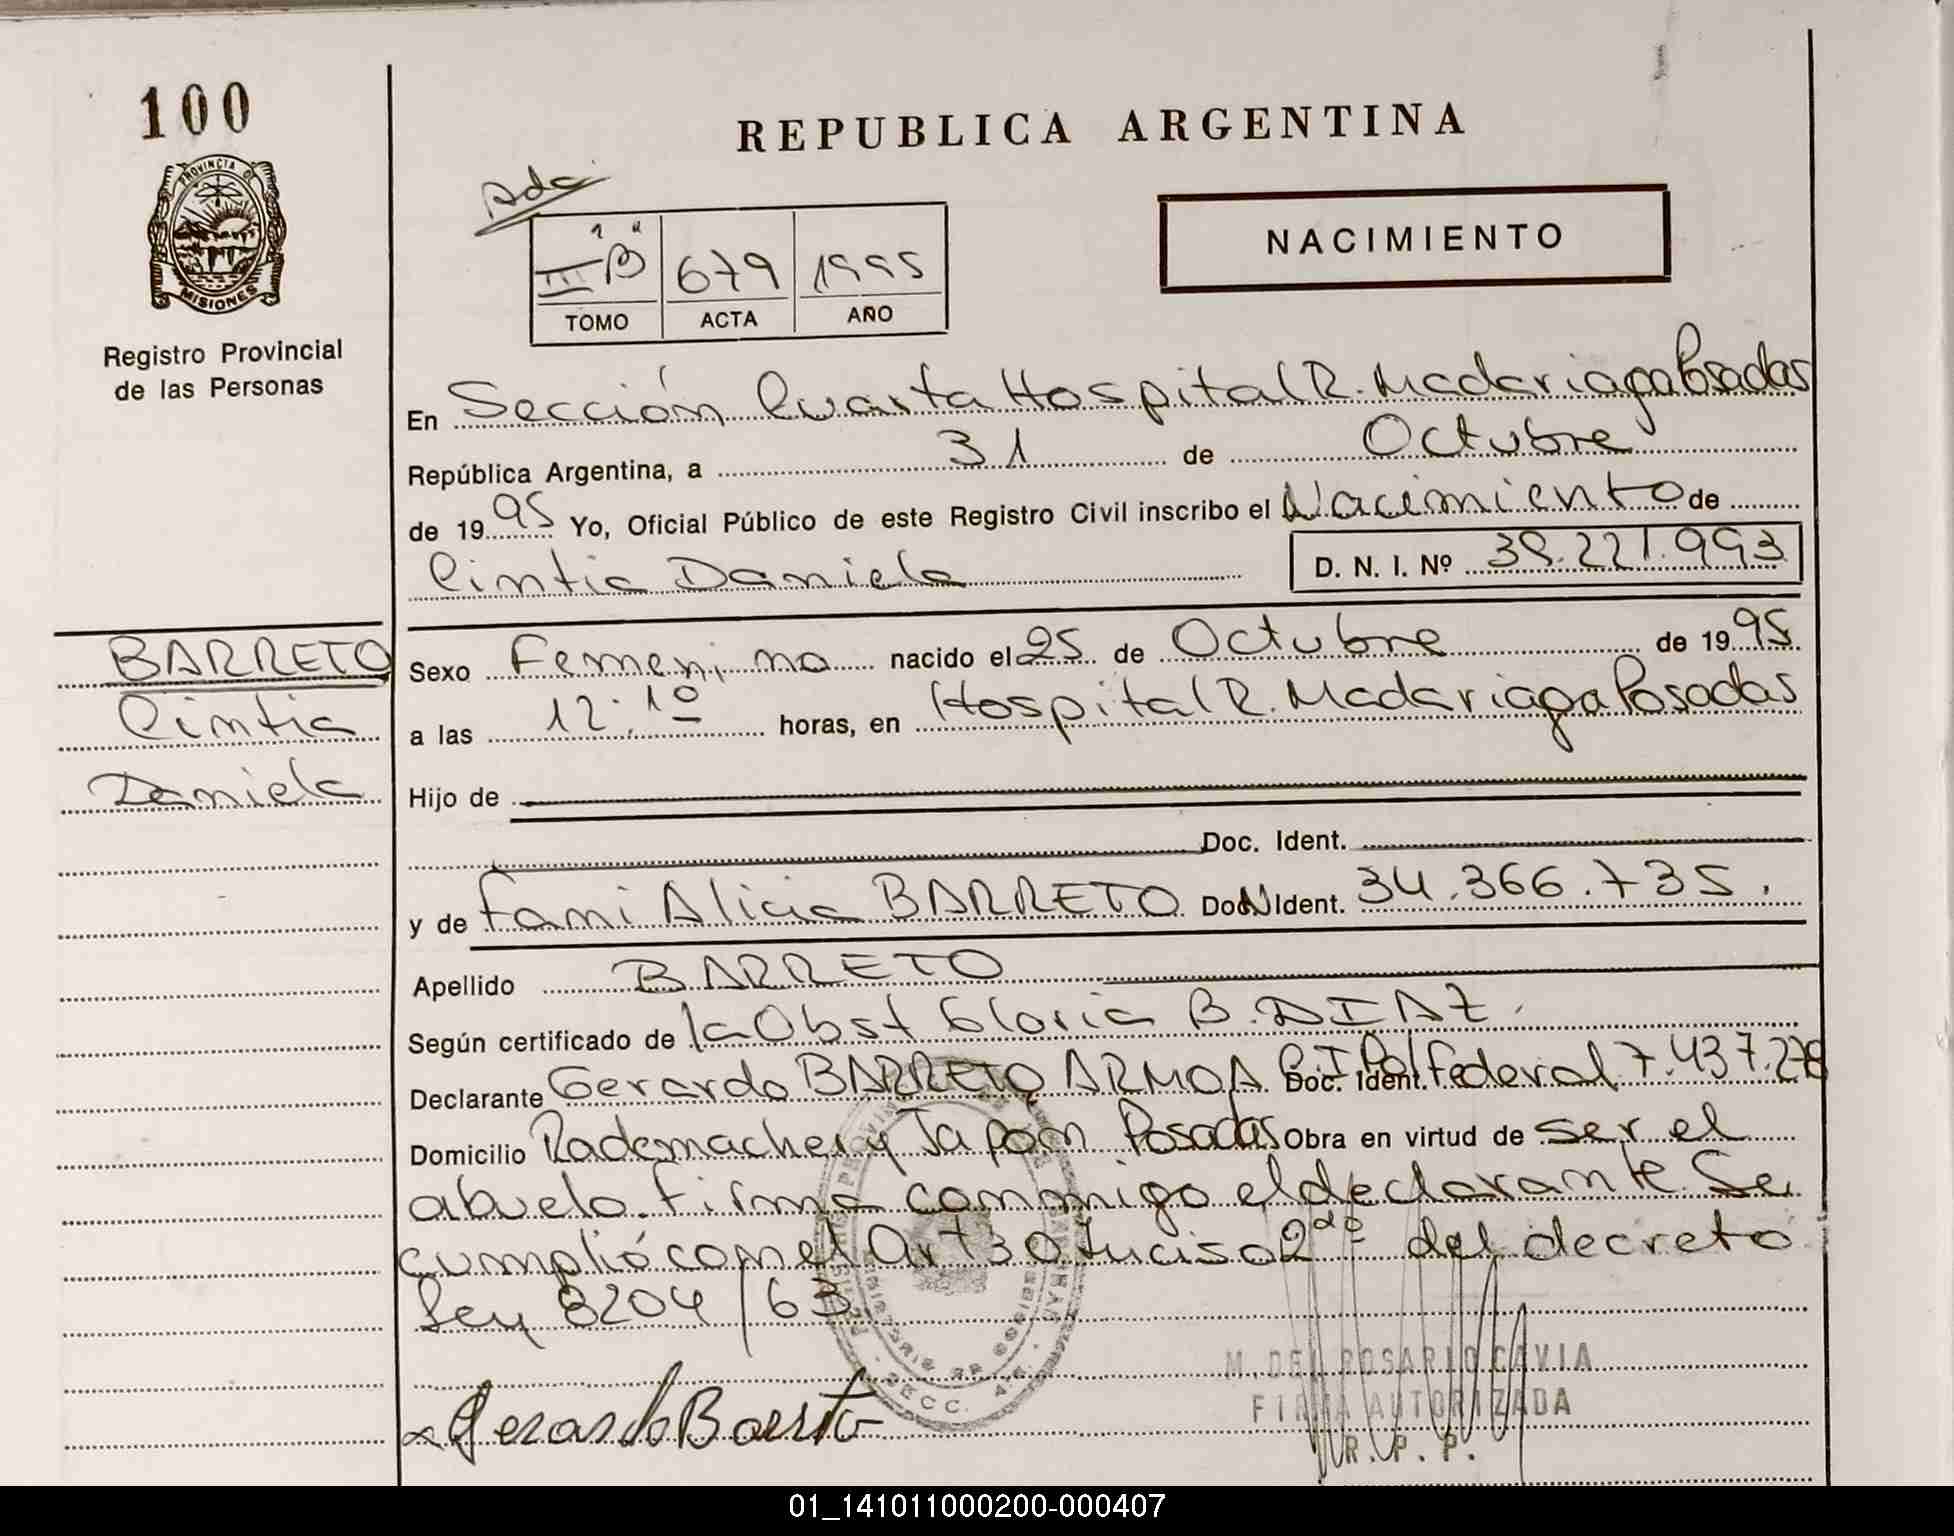 100
PROVINCIA D
MISIONES
Registro Provincial
de las Personas
REPUBLICA ARGENTINA
NACIMIENTO
III B 679 1995
TOMO ACTA AÑO
En Sección Cuarta Hospital R. Madariaga Posadas
República Argentina, a 31 de Octubre
de 1995 Yo, Oficial Público de este Registro Civil inscribo el Nacimiento de
Cintia Daniela D. N. I. Nº 39.221.993
BARRETO
Cintia
Daniela
Sexo Femenino nacido el 25 de Octubre de 1995
a las 12:10 horas, en Hospital R. Madariaga Posadas
Hijo de
Doc. Ident.
y de Fani Alicia BARRETO Doc. Ident. 34.366.735.
Apellido BARRETO
Según certificado de la Obst Gloria B. DIAZ.
Declarante Gerardo BARRETO ARMOA Doc. Ident. C.I. Pol Federal 7.437.278
Domicilio Rademacher y Japón Posadas Obra en virtud de ser el
abuelo. Firma conmigo el declarante Se
cumplió con el Art 30 Inciso 2do del decreto
Ley 8204/63
Gerardo Barreto
M. DEL ROSARIO CAVIA
FIRMA AUTORIZADA
R. P. P.
01_141011000200-000407